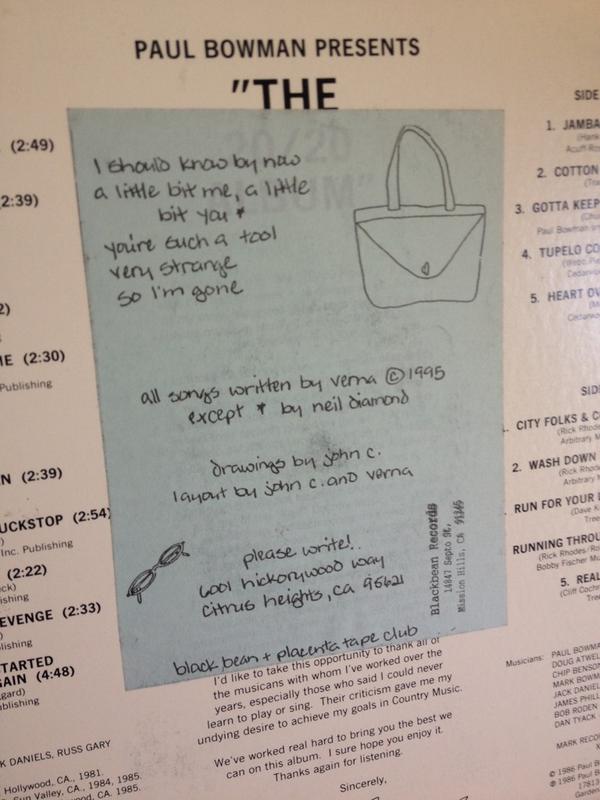 PAUL BOWMAN PRESENTS
"THE
I should know by now
a little bit me, a little
bit you *
you're such a tool
very strange
so I'm gone
all songs written by verna © 1995
except * by neil diamond
drawings by john c.
layout by john c. and verna
please write!
6001 hickorywood way
citrus heights, ca 95621
Blackbean Records
14847 Septo St,
Mission Hills, CA 91345
black bean + placenta tape club
(2:49)
2:39)
2)
IE (2:30)
Publishing
N (2:39)
UCKSTOP (2:54)
Inc. Publishing
(2:22)
ck)
ishing
EVENGE (2:33)
lishing
TARTED
GAIN (4:48)
gard)
ublishing
K DANIELS, RUSS GARY
Hollywood, CA., 1981.
Sun Valley, CA., 1984, 1985.
wood, CA. 1985.
SIDE
1. JAMBA
(Hank
Acuff-Ro
2. COTTON
(Tra
3. GOTTA KEEP
(Chu
Paul Bowman
4. TUPELO CO
(Webb Pie
Cedarwoo
5. HEART OV
(M
Cedarwo
SID
. CITY FOLKS & C
(Rick Rhode
Arbitrary M
2. WASH DOWN
(Rick Rhode
Arbitrary M
RUN FOR YOUR
(Dave K
Tree
RUNNING THROU
(Rick Rhodes/Ro
Bobby Fischer Mu
5. REAL
(Cliff Coch
Tree
I'd like to take this opportunity to thank all of
the musicians with whom I've worked over the
years, especially those who said I could never
learn to play or sing. Their criticism gave me my
undying desire to achieve my goals in Country Music.
We've worked real hard to bring you the best we
can on this album. I sure hope you enjoy it.
Thanks again for listening.
Sincerely,
Musicians:
PAUL BOWMA
DOUG ATWEL
CHIP BENSON
MARK BOWM
JACK DANIEL
JAMES PHILL
BOB RODEN
DAN TYACK
MARK RECO
© 1986 Paul B
℗ 1986 Paul B
17813
Garden